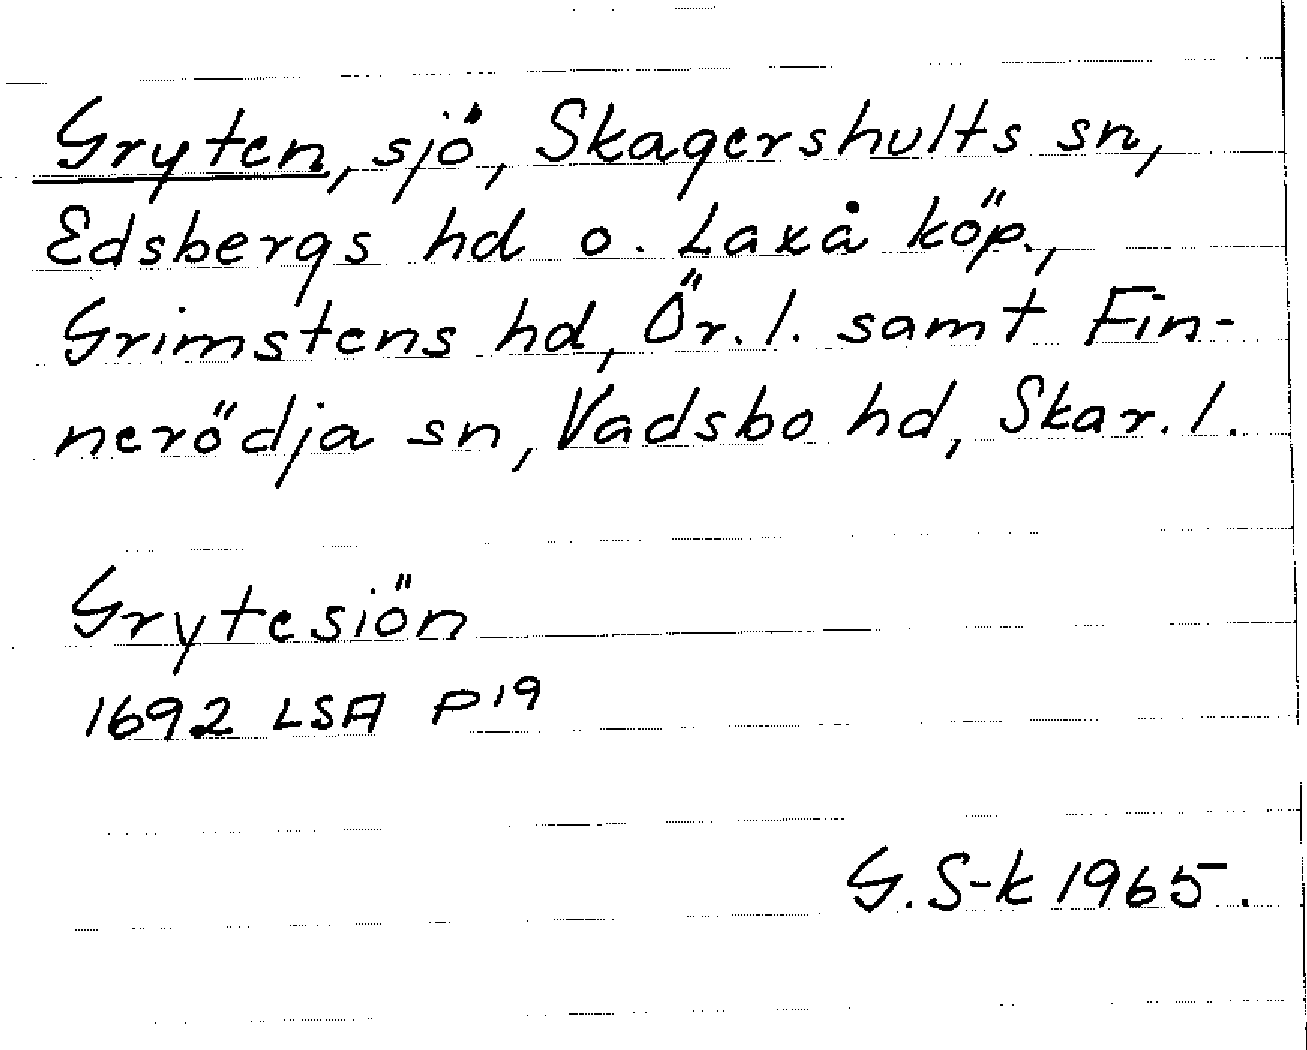 Gryten, sjö, Skagershults sn,
Edsbergs hd o. Laxå köp.,
Grimstens hd, Ör. l. samt Fin-
nerödja sn, Vadsbo hd, Skar. l.
Grytesiön
1692 LSA P19
G. S-k 1965.